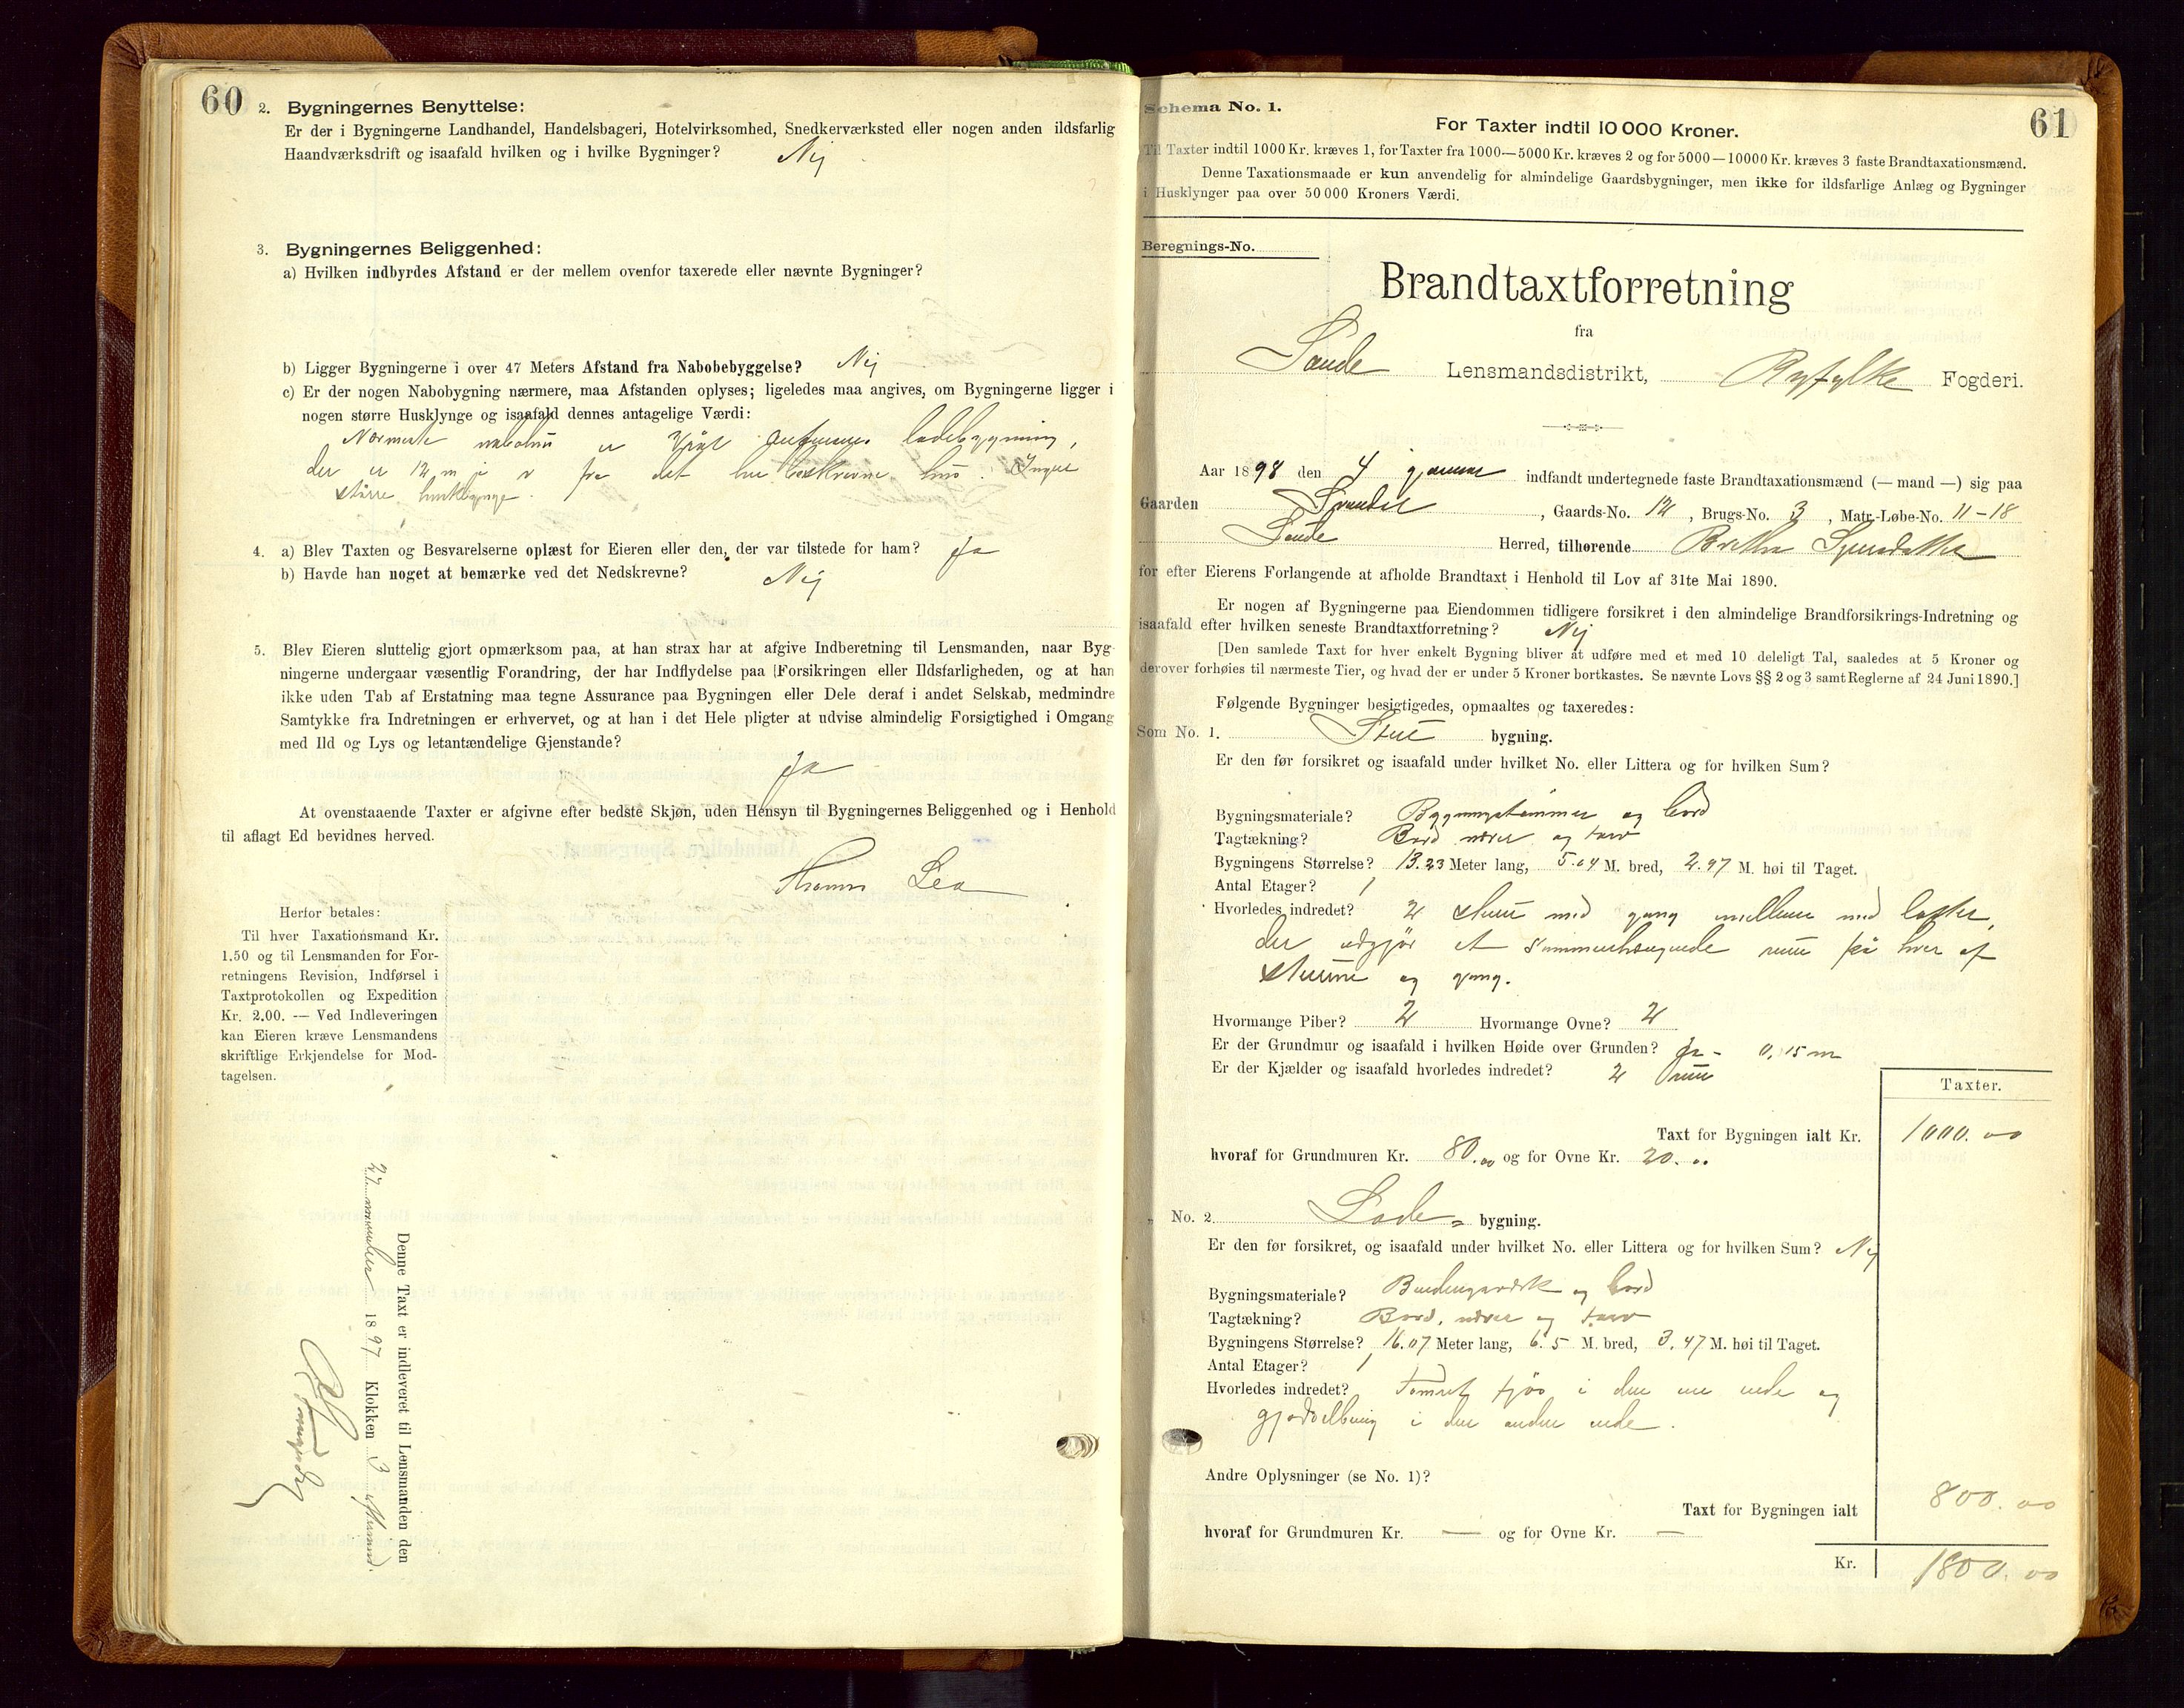 60
2. Bygningernes Benyttelse:
Er der i Bygningerne Landhandel, Handelsbageri, Hotelvirksomhed, Snedkerværksted eller nogen anden ildsfarlig
Haandværksdrift og isaafald hvilken og i hvilke Bygninger? Nej
3. Bygningernes Beliggenhed:
a) Hvilken indbyrdes Afstand er der mellem ovenfor taxerede eller nævnte Bygninger?
b) Ligger Bygningerne i over 47 Meters Afstand fra Nabobebyggelse? Nej
c) Er der nogen Nabobygning nærmere, maa Afstanden oplyses; ligeledes maa angives, om Bygningerne ligger i
nogen større Husklynge og isaafald dennes antagelige Værdi:
Nærmeste nabohus er ladebygning,
der er 12 m fra det her beskrevne hus. Ingen
større husklynge.
4. a) Blev Taxten og Besvarelserne oplæst for Eieren eller den, der var tilstede for ham? Ja
b) Havde han noget at bemærke ved det Nedskrevne? Nej
5. Blev Eieren sluttelig gjort opmærksom paa, at han strax har at afgive Indberetning til Lensmanden, naar Byg-
ningerne undergaar væsentlig Forandring, der har Indflydelse paa Forsikringen eller Ildsfarligheden, og at han
ikke uden Tab af Erstatning maa tegne Assurance paa Bygningen eller Dele deraf i andet Selskab, medmindre
Samtykke fra Indretningen er erhvervet, og at han i det Hele pligter at udvise almindelig Forsigtighed i Omgang
med Ild og Lys og letantændelige Gjenstande?
Ja
At ovenstaaende Taxter er afgivne efter bedste Skjøn, uden Hensyn til Bygningernes Beliggenhed og i Henhold
til aflagt Ed bevidnes herved.
Lea
Herfor betales:
Til hver Taxationsmand Kr.
1.50 og til Lensmanden for For-
retningens Revision, Indførsel i
Taxtprotokollen og Expedition
Kr. 2.00. — Ved Indleveringen
kan Eieren kræve Lensmandens
skriftlige Erkjendelse for Mod-
tagelsen.
Denne Taxt er indleveret til Lensmanden den
27 november 1897 Klokken 3
61
Schema No. 1.
For Taxter indtil 10 000 Kroner.
Til Taxter indtil 1000 Kr. kræves 1, for Taxter fra 1000—5000 Kr. kræves 2 og for 5000—10000 Kr. kræves 3 faste Brandtaxationsmænd.
Denne Taxationsmaade er kun anvendelig for almindelige Gaardsbygninger, men ikke for ildsfarlige Anlæg og Bygninger
i Husklynger paa over 50 000 Kroners Værdi.
Beregnings-No.
Brandtaxtforretning
fra
Sande Lensmandsdistrikt, Ryfylke Fogderi.
Aar 1898 den 4 januar indfandt undertegnede faste Brandtaxationsmænd (— mand —) sig paa
Gaarden , Gaards-No. 12, Brugs-No. 3, Matr.-Løbe-No. 11-18
Sande Herred, tilhørende
for efter Eierens Forlangende at afholde Brandtaxt i Henhold til Lov af 31te Mai 1890.
Er nogen af Bygningerne paa Eiendommen tidligere forsikret i den almindelige Brandforsikrings-Indretning og
isaafald efter hvilken seneste Brandtaxtforretning? Nej
[Den samlede Taxt for hver enkelt Bygning bliver at udføre med et med 10 deleligt Tal, saaledes at 5 Kroner og
derover forhøies til nærmeste Tier, og hvad der er under 5 Kroner bortkastes. Se nævnte Lovs §§ 2 og 3 samt Reglerne af 24 Juni 1890.]
Følgende Bygninger besigtigedes, opmaaltes og taxeredes:
Som No. 1. Stue bygning.
Er den før forsikret og isaafald under hvilket No. eller Littera og for hvilken Sum?
Bygningsmateriale? Bygningstømmer og bord
Tagtækning? Bord næver og torv
Bygningens Størrelse? 13.23 Meter lang, 5.04 M. bred, 2.97 M. høi til Taget.
Antal Etager? 1
Hvorledes indredet? 2 stuer med gang mellem med lofter,
der udgjør et sammenhængende rum på hver af
stuerne og gang.
Hvormange Piber? 2 Hvormange Ovne? 2
Er der Grundmur og isaafald i hvilken Høide over Grunden? Ja - 0,15 m
Er der Kjælder og isaafald hvorledes indredet? 2 rum
Taxter.
Taxt for Bygningen ialt Kr. 1000.00
hvoraf for Grundmuren Kr. 80.00 og for Ovne Kr. 20.00
" No. 2. Lade- bygning.
Er den før forsikret, og isaafald under hvilket No. eller Littera og for hvilken Sum? Nej
Bygningsmateriale? Bindingsværk og bord
Tagtækning? Bord, næver og torv
Bygningens Størrelse? 16.07 Meter lang, 6.5 M. bred, 3.47 M. høi til Taget.
Antal Etager? 1
Hvorledes indredet? Tømret fjøs i den ene ende og
i den anden ende.
Andre Oplysninger (se No. 1)?
Taxt for Bygningen ialt 800.00
hvoraf for Grundmuren Kr. — og for Ovne Kr. —
Kr. 1800.00